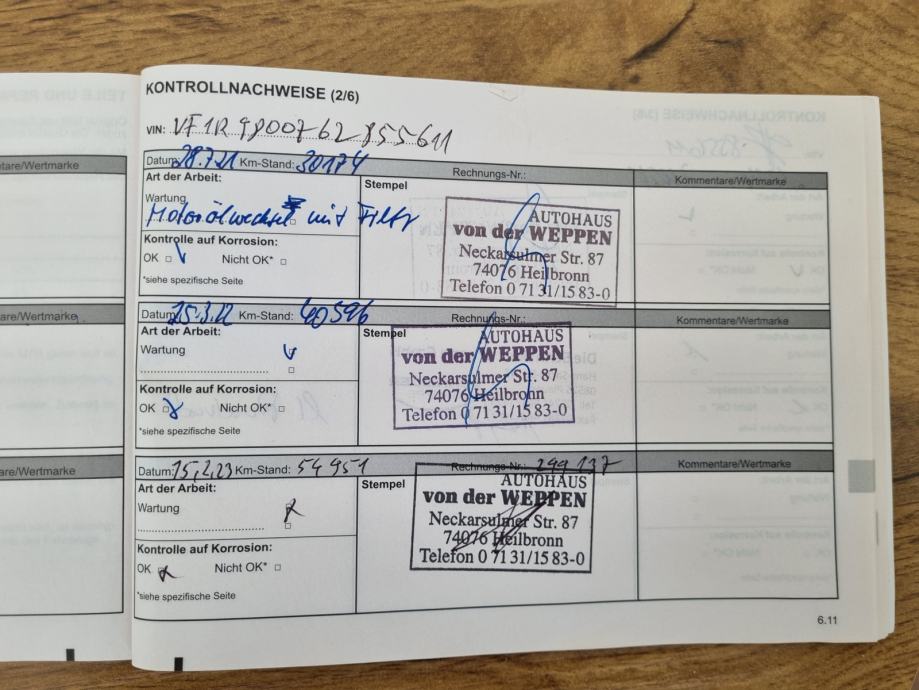 KONTROLLNACHWEISE (2/6)
VIN: VF1R9800762855611
Datum: 28.7.21 Km-Stand: 30174 Rechnungs-Nr.: Kommentare/Wertmarke
Art der Arbeit: Stempel
Wartung
Motorölwechsel mit Filter
Kontrolle auf Korrosion:
OK Nicht OK*
*siehe spezifische Seite
AUTOHAUS
von der WEPPEN
Neckarsulmer Str. 87
74076 Heilbronn
Telefon 0 71 31/15 83-0
Datum: 15.3.22 Km-Stand: 40596 Rechnungs-Nr.: Kommentare/Wertmarke
Art der Arbeit: Stempel
Wartung
Kontrolle auf Korrosion:
OK Nicht OK*
*siehe spezifische Seite
AUTOHAUS
von der WEPPEN
Neckarsulmer Str. 87
74076 Heilbronn
Telefon 0 71 31/15 83-0
Datum: 15.2.23 Km-Stand: 54951 Rechnungs-Nr.: 299137 Kommentare/Wertmarke
Art der Arbeit: Stempel
Wartung
Kontrolle auf Korrosion:
OK Nicht OK*
*siehe spezifische Seite
AUTOHAUS
von der WEPPEN
Neckarsulmer Str. 87
74076 Heilbronn
Telefon 0 71 31/15 83-0
6.11